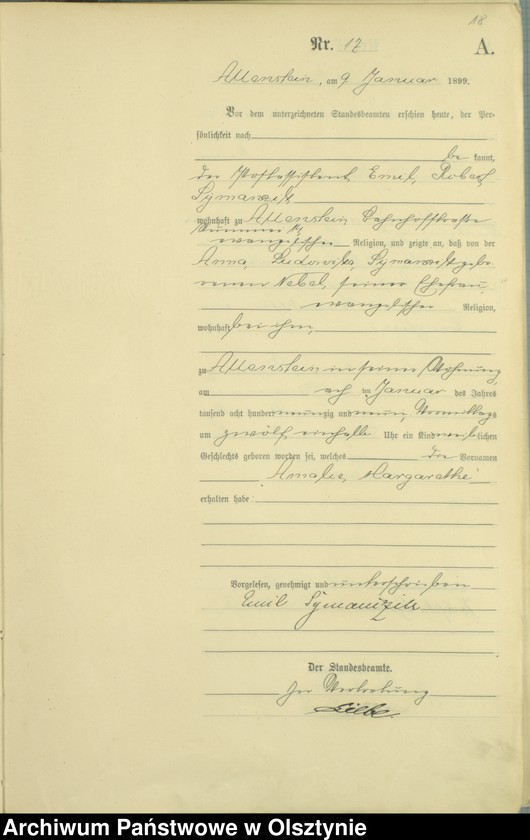 18
Nr. 17
A.
Allenstein, am 9 Januar 1899.
Vor dem unterzeichneten Standesbeamten erschien heute, der Per-
sönlichkeit nach
be kannt,
der Postassistent Emil, Robert
Symanzik
wohnhaft zu Allenstein Bahnhofstraße
Nummer
evangelischer Religion, und zeigte an, daß von der
Anna, Ludowika, Symanzik gebo
renen Nebel, seiner Ehefrau,
evangelischer Religion,
wohnhaft bei ihm,
zu Allenstein in seiner Wohnung,
am ten Januar des Jahres
tausend acht hundert neunzig und neun, Vormittags
um zwölf einhalb Uhr ein Kind weiblichen
Geschlechts geboren worden sei, welches die Vornamen
Amalie, Margarethe
erhalten habe
Vorgelesen, genehmigt und unterschrieben
Emil Symanzik
Der Standesbeamte.
In Vertretung
Archiwum Państwowe w Olsztynie